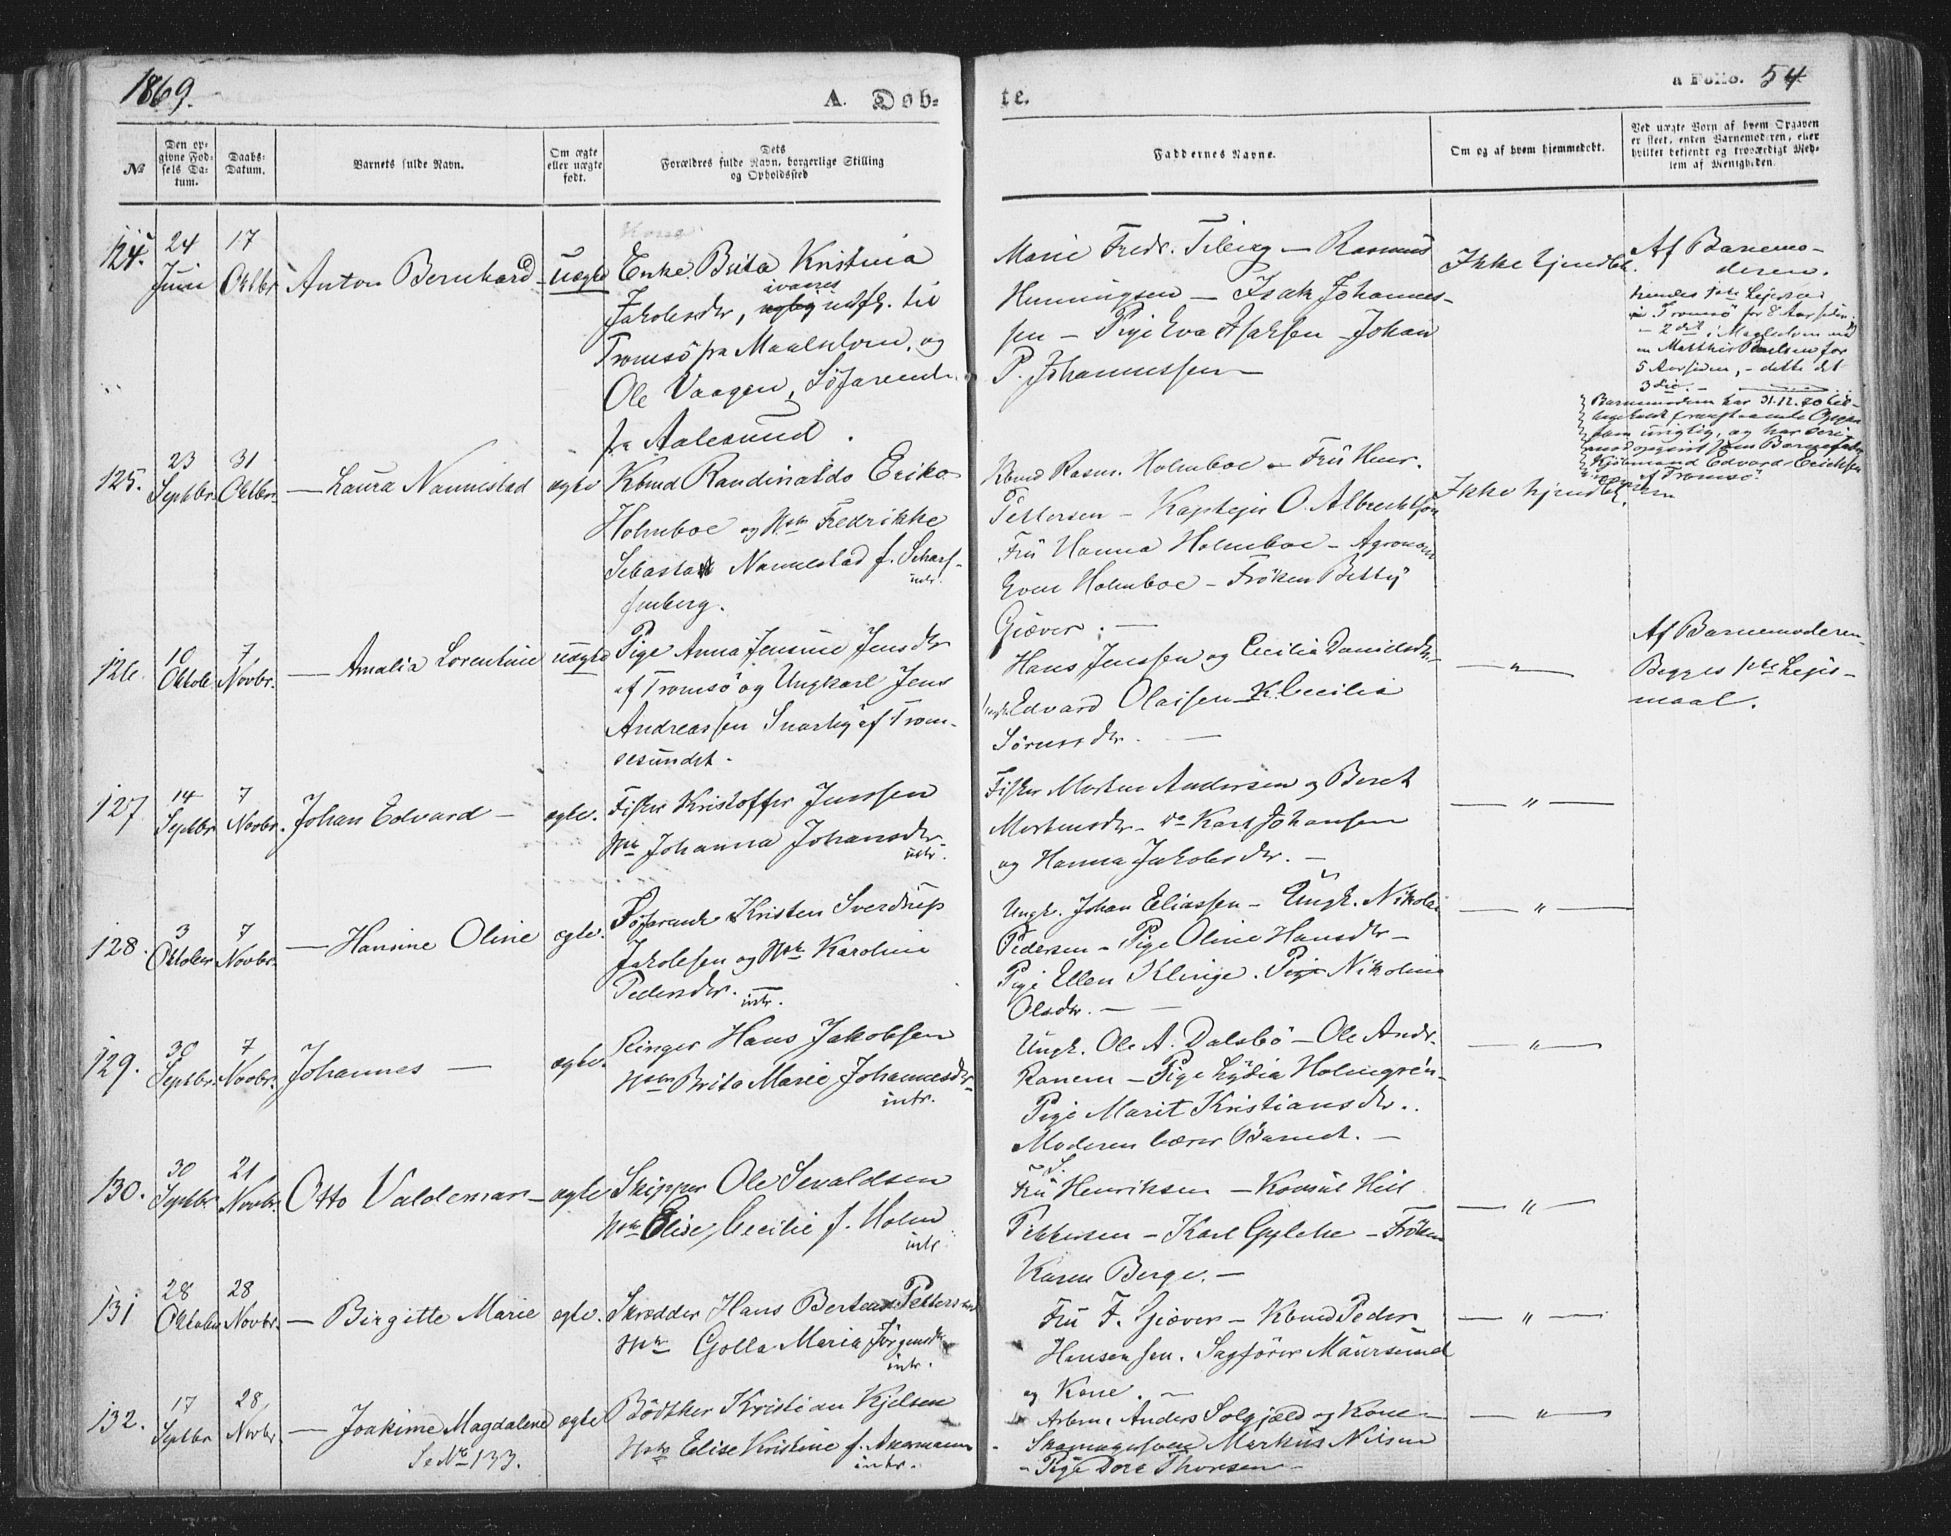 1869.
A. Døb-
te.
a Folio. 54
№
Den op-
givne Fød-
sels Da-
tum.
Daabs-
Datum.
Barnets fulde Navn.
Om ægte
eller uægte
født.
Dets
Forældres fulde Navn, borgerlige Stilling
og Opholdssted
Faddernes Navne.
Om og af hvem hjemmedøbt.
Ved uægte Børn af hvem Opgaven
er skeet, enten Barnemoderen, eller
hvilket bekjendt og troværdigt Med-
lem af Menigheden.
124.
24
Juni
17
Oktbr
Anton Bernhard
uægte
Enke Brita Kristina
Jakobsdr, indfl. til
Tromsö fra Maalselven, og
Ole Vaagen, Söfarende
fra Aalesund.
Marie Fredr. Tiberg - Rasmus
Henningsen - Isak Johannes-
sen - Pige Eva Isaksen - Johan
P. Johannessen -
Ikke hjmdbt.
Af Barnemo-
deren.
hendes 1ste Lejersm.
i Tromsö for 8 Aar siden
- 2det i Maalselven med
en Matthis Paulsen for
5 Aar siden, - dette det
3die. -
Barnemoderen har 31.12.70 til-
bagekaldt Opgave
som urigtig, og har
opgivet som Barnefader
Edvard Erichsen
af Tromsö
125.
23
Septbr.
31
Oktbr.
- Laura Nannestad
ægte
Kbmd Randinaldo Eriko
Holmboe og Hstr Fredrikke
Sebasta Nannestad f. Scharf-
intr.
fenberg.
Kbmd Rasm. Holmboe - Fru Henr.
Pettersen - Kaptejn O. Albrechtson
Fru Hanna Holmboe - Agronom
Even Holmboe - Fröken Betty
Giæver. -
Ikke hjmdbt.
126.
10
Oktob.
7
Novbr.
- Amalia Lorentine
uægte
Pige Anna Jensine Jensdr
af Tromsö og Ungkarl Jens
Andreassen Snarby af Trom-
sesundet.
Hans Jenssen og Cecilia Danielsdr.
Edvard Olaisen K. Cecilia
Sörensdr. -
- " -
Af Barnemoderen
Begges 1ste Lejer-
maal.
127
14
Septbr.
7
Novbr.
Johan Edvard -
ægte.
Fisker Kristoffer Jenssen
Hstr Johanna Johansdr.
intr.
Fisker Morten Andersen og Beret
Mortensdr. Do Karl Johansen
og Hanna Jakobsdr. -
- " -
128.
3
Oktober
7
Novbr.
- Hansine Oline
ægte.
Söfarende Kristen Sverdrup
Jakobsen og Hstr Karoline
Pedersdr. intr.
Ungk. Johan Eliassen - Ungk. Nikolai
Pedersen - Pige Oline Hansdr -
Pige Ellen Klinge. Pige Nikoline
Olsdr. -
- " -
129.
30
Septbr.
7
Novbr.
Johannes -
ægte.
Ringer Hans Jakobsen
Hstr Brita Marie Johannesdr.
intr.
Ungk. Ole A. Dalsbö - Ole Andr.
Ranem - Pige Lydia Holmgrén -
Pige Marit Kristiansdr..
Moderen bærer Barnet. -
- " -
130.
30
Septbr
21
Novbr.
Otto Valdemar -
ægte
Skipper Ole Sevaldsen
Hstr Elise Cecilie f. Holm
intr.
Fru S. Henriksen - Konsul Hill
Pettersen - Karl Gylche - Fröken
Karen Berge. -
- " -
131
28
Oktober
28
Novbr.
- Birgitte Marie
ægte.
Skrædder Hans Berteus Petters
Hstr Golla Maria Jörgensdr.
intr.
Fru F. Giæver - Kbmd Peder
Hansensen. Sagförer Maursund
og Kone. -
- " -
132.
17
Septbr
28
Novbr
- Joakime Magdalene
ægte
Bödtker Kristian Kjelsen
Hstr Elise Kristine f. Akermann
intr.
Se No 133.
Arbm. Anders Solgjeld og Kone -
Skomagersvend Markus Nilsen
- Pige Dore Thorsen -
- " -